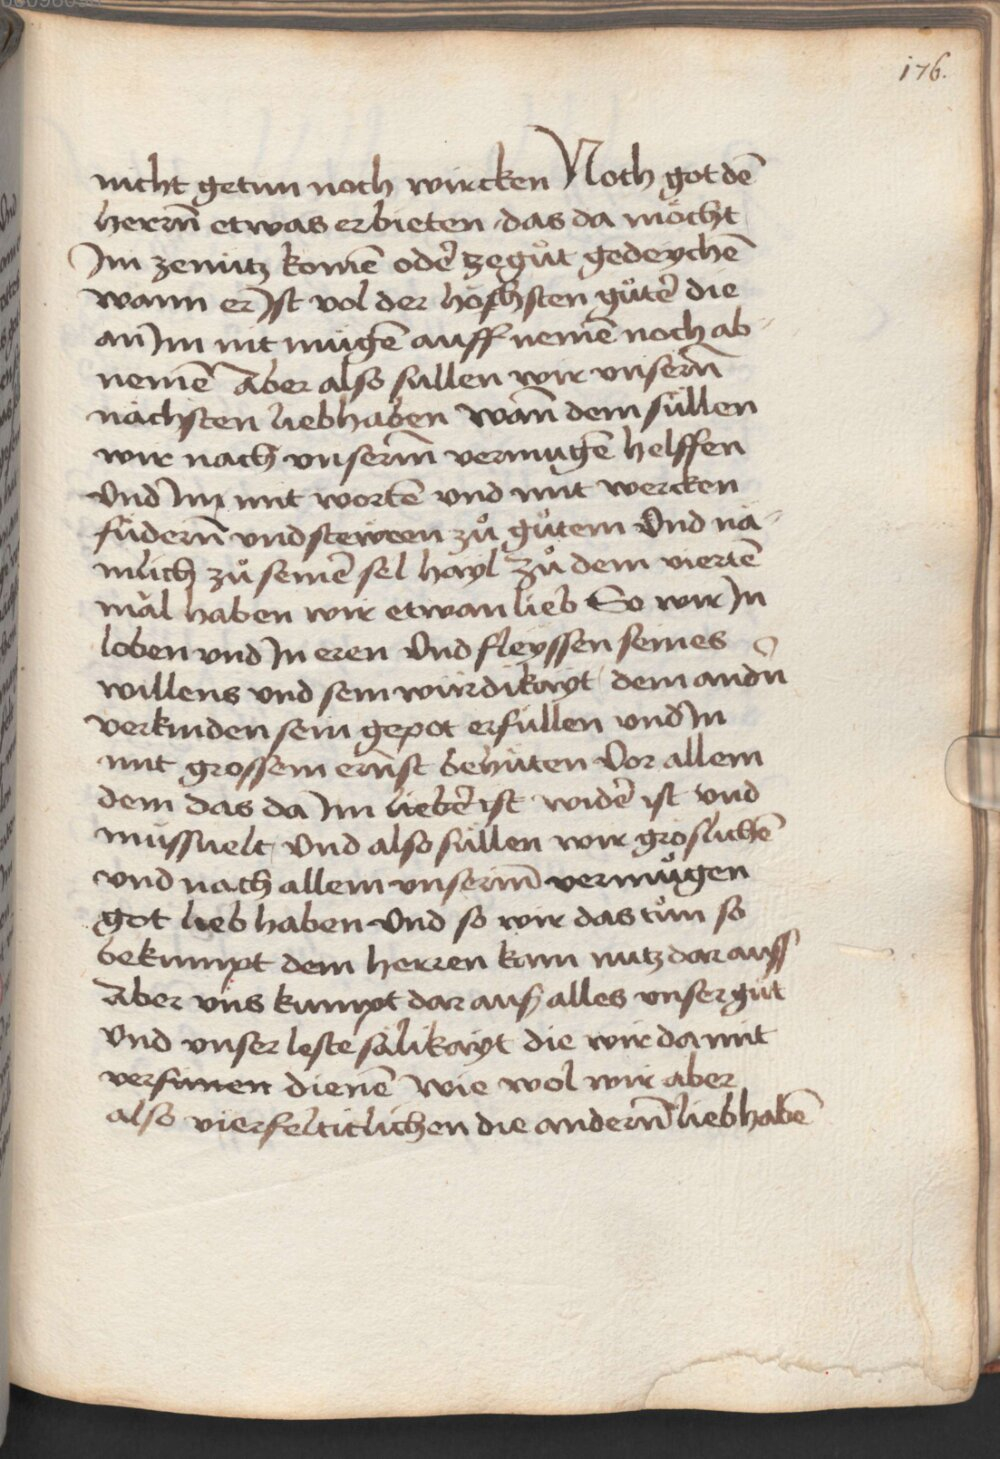 176.
nicht getun noch wircken Noch got dē
herrn̄ etwas erbieten das da möcht
Im zenutz komē odē zegůt gedeychē
wann er Ist vol der höchsten gůtē die
an Im nit mugē auff nemē noch ab-
nemē Aber also sullen wir vnsern̄
nächsten liebhaben wan̄ dem süllen
wir nach vnserm̄ vermugē helffen
Vnd Im mit wortē vnd mit wercken
füdern̄ vnd stewren zů gůtem Vnd nä-
mlich zů seinē sel hayl Zů dem viertē
mäl haben wir etwan lieb So wir In
loben vnd In eren Vnd fleyssen seines
willens vnd sein wirdikayt dem andn̄
verkinden sein gepot erfüllen vnd In
mit grossem ernst behüten Vor allem
dem das da Im liebē ist widē ist vnd
müssuelt Vnd also süllen wir gröslichē
vnd nach allem vnserm̄ vermůgen
got lieb haben Vnd so wir das tům so
bekumpt dem herren kain nutz dar auß
Aber vns kumpt dar auß alles vnser gůt
Vnd vnser leste sälikayt die wir da mit
versünen dienē wie wol wir aber
also vierfeltitlichen die andern̄ liebhabē